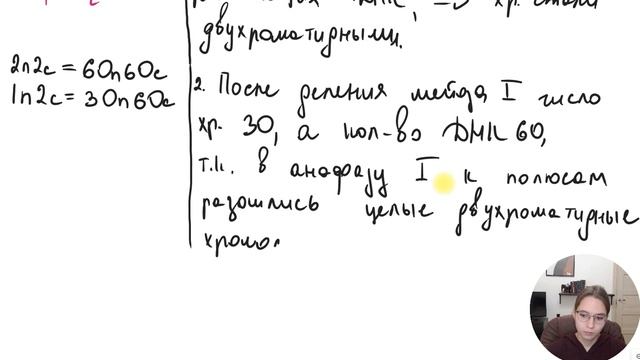 хр. стали
двухроматидными.
2n2c = 60n60c
1n2c = 30n60c
2. После деления мейоза I число
хр. 30, а кол-во ДНК 60,
т.к. в анафазу I к полюсам
разошлись целые двухроматидные
хромо